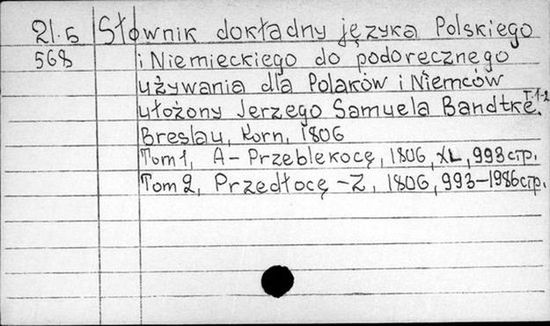 21.5 Słownik dokładny języka Polskiego
568 i Niemieckiego do podoręcznego
używania dla Polaków i Niemców
ułożony Jerzego Samuela Bandtke. T.1-2
Breslau, Korn, 1806
Tom 1, A - Przeblekocę, 1806, XL, 993 стр.
Tom 2, Przedłocę - Z, 1806, 993-1986 стр.